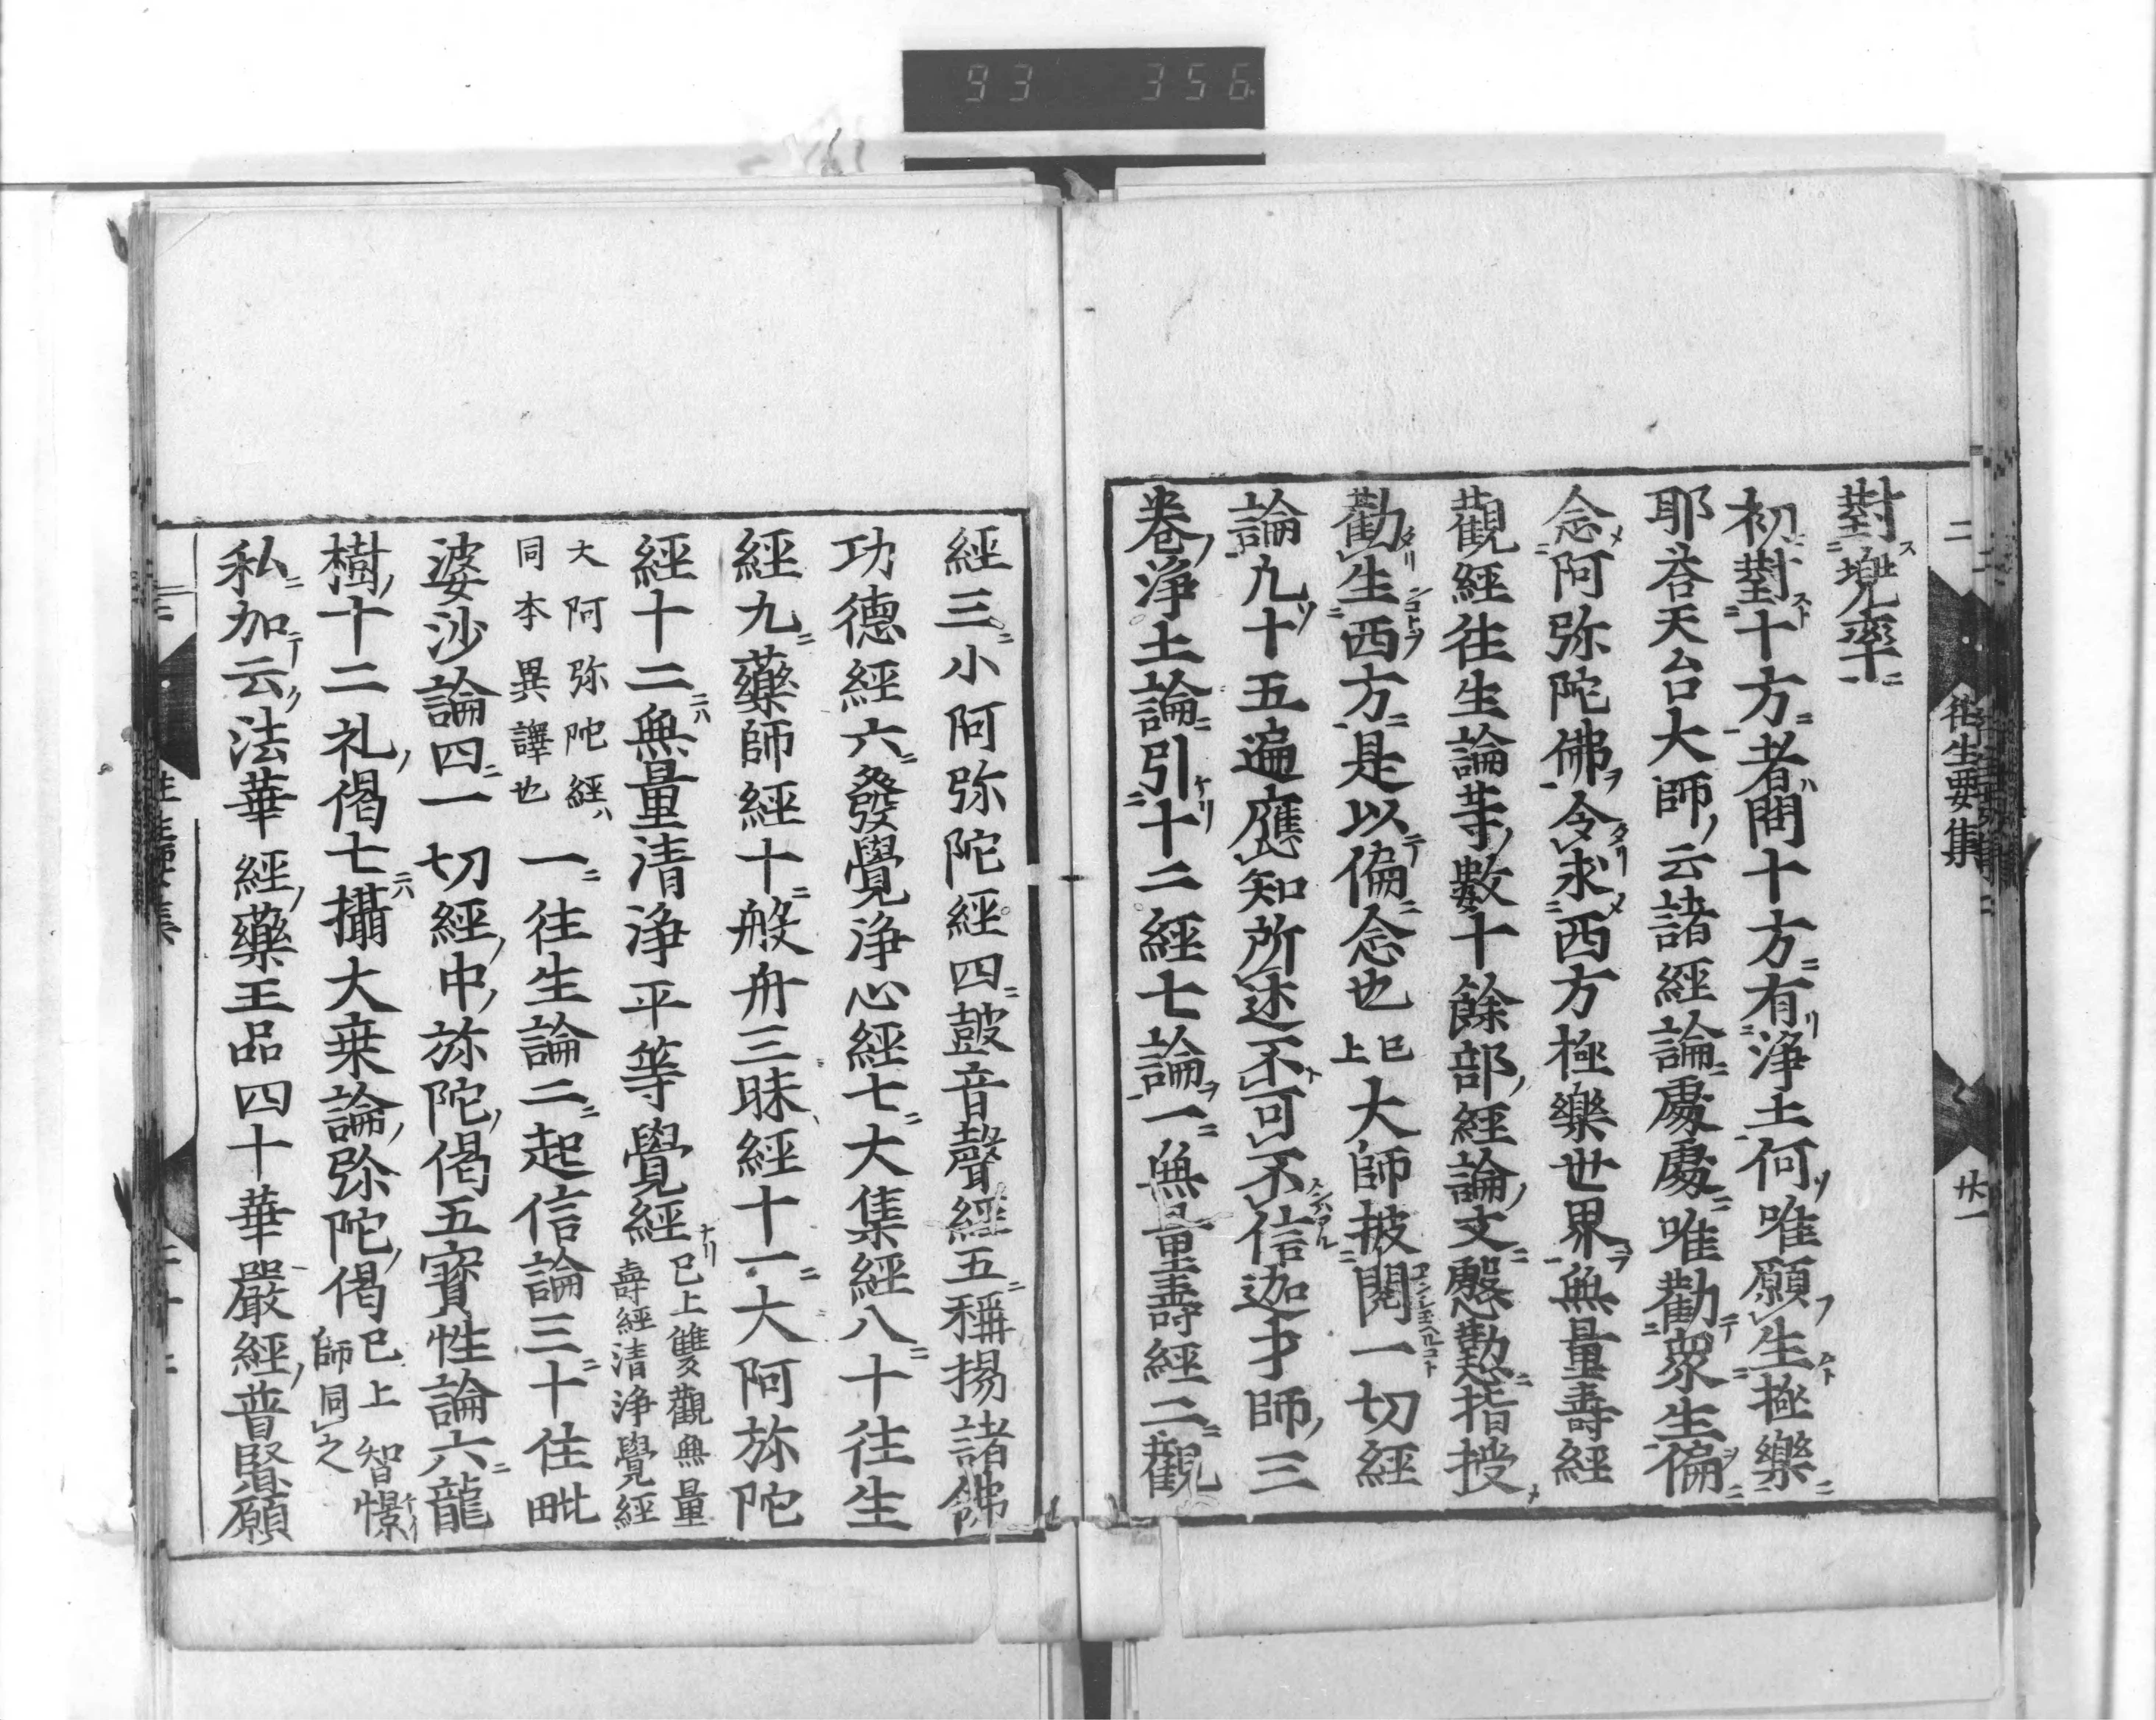 93 356
二 往生要集 廿一
對兜率
初對十方者問十方有淨土何唯願生極樂
耶荅天台大師云諸經論處處唯勸衆生偏
念阿弥陀佛令求西方極樂世界無量壽經
觀經往生論等數十餘部經論文慇懃指授
勸生西方是以偏念也已上大師披閱一切經
論凢十五遍應知所述不可不信迦才師三
卷淨土論引十二經七論一無量壽經二觀
經三小阿弥陀經四鼓音聲經五稱揚諸佛
功德經六發覺淨心經七大集經八十往生
經九藥師經十般舟三昧經十一大阿弥陀
經十二無量清淨平等覺經已上雙觀無量
壽經清淨覺經
大阿弥陀經
同本異譯也一往生論二起信論三十住毗
婆沙論四一切經中弥陀偈五寶性論六龍
樹十二礼偈七攝大乗論弥陀偈已上智憬
師同之
私加云法華經藥王品四十華嚴經普賢願